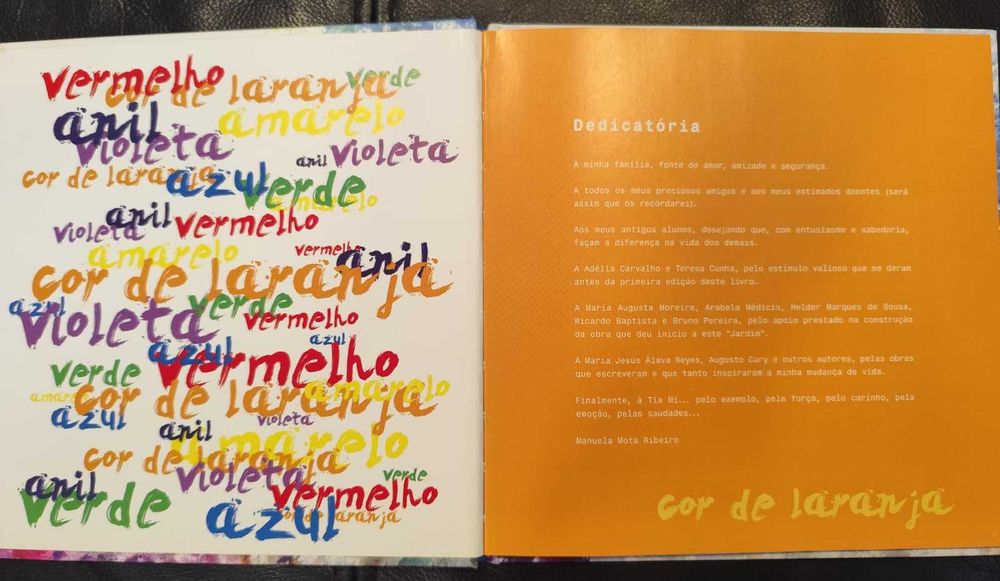 vermelho
cor de laranja
verde
anil
amarelo
violeta
anil
violeta
cor de laranja
azul
verde
amarelo
anil
violeta
vermelho
amarelo
vermelho
anil
cor de laranja
azul
verde
violeta
vermelho
azul
azul
vermelho
verde
amarelo
cor de laranja
amarelo
azul
violeta
anil
amarelo
cor de laranja
violeta
verde
anil
vermelho
verde
azul
cor de laranja
Dedicatória
À minha família, fonte de amor, amizade e segurança.
A todos os meus preciosos amigos e aos meus estimados doentes (será
assim que os recordarei).
Aos meus antigos alunos, desejando que, com entusiasmo e sabedoria,
façam a diferença na vida dos demais.
A Adélia Carvalho e Teresa Cunha, pelo estímulo valioso que me deram
antes da primeira edição deste livro.
A Maria Augusta Moreira, Arabela Médicis, Helder Marques de Sousa,
Ricardo Baptista e Bruno Pereira, pelo apoio prestado na construção
da obra que deu início a este "Jardim".
A Maria Jesús Álava Reyes, Augusto Cury e outros autores, pelas obras
que escreveram e que tanto inspiraram a minha mudança de vida.
Finalmente, à Tia Mi... pelo exemplo, pela força, pelo carinho, pela
emoção, pelas saudades...
Manuela Mota Ribeiro
cor de laranja